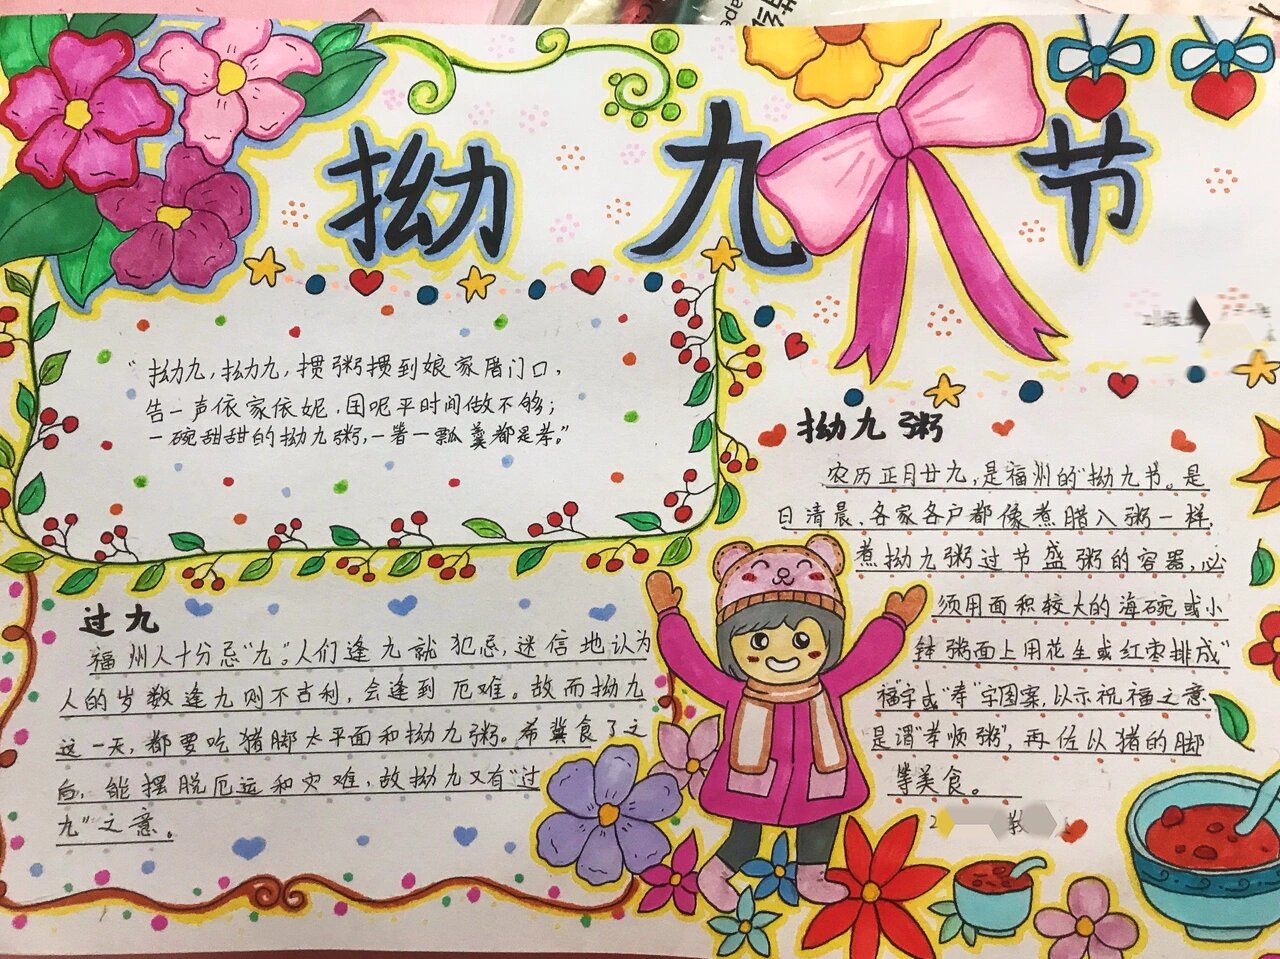 拗九节
"拗九,拗九,掼粥掼到娘家厝门口,
告一声依家依妮,囯呢平时间做不够;
一碗甜甜的拗九粥,一箸一瓢羹都是孝。"
过九
福州人十分忌"九"。人们逢九就犯忌,迷信地认为
人的岁数逢九则不吉利,会逢到厄难。故而拗九
这一天,都要吃猪脚太平面和拗九粥。希冀食了之
后,能摆脱厄远和灾难,故拗九又有"过
九"之意。
拗九粥
农历正月廿九,是福州的"拗九节。是
日清晨,各家各户都像煮腊入粥一样,
煮拗九粥过节盛粥的容器,必
须用面积较大的海碗或小
钵粥面上用花生或红枣排成"
福"字或"孝"字图案,以示祝福之意
是谓"孝顺粥",再佐以猪的脚
等美食。